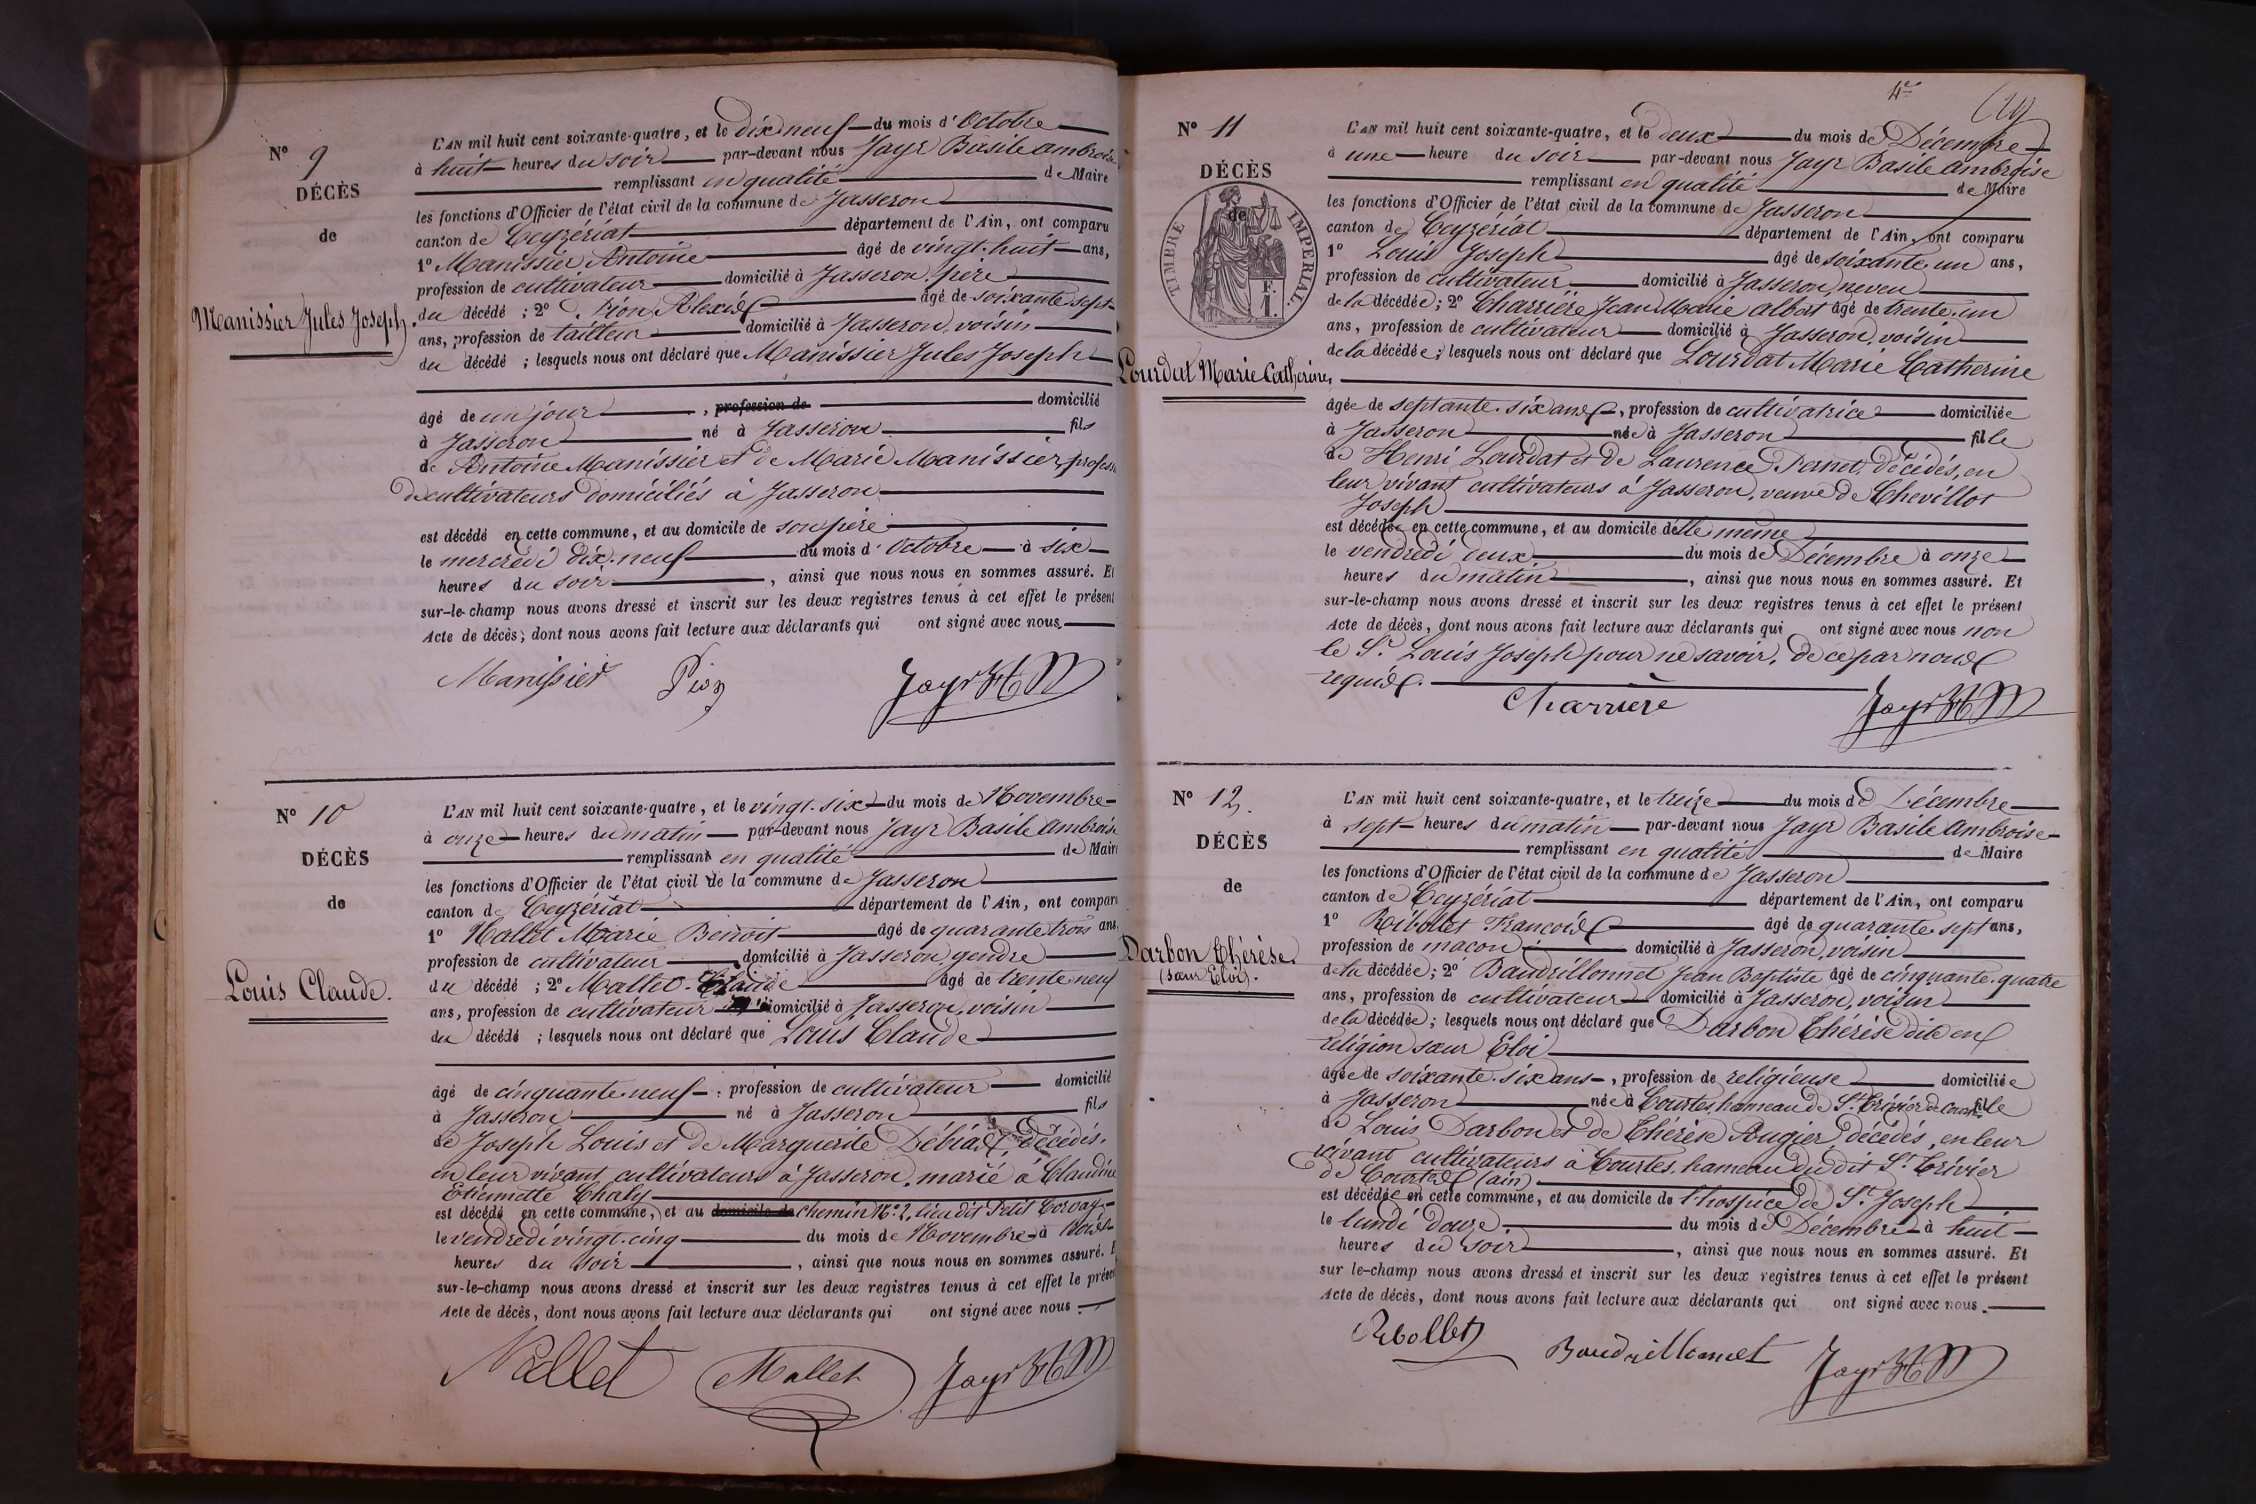 N° 9
DÉCÈS
de
Manissier Jules Joseph.
L'AN mil huit cent soixante-quatre, et le dix neuf du mois d'Octobre
à huit heures du soir par-devant nous Jayr Basile Ambroise
remplissant en qualité de Maire
les fonctions d'Officier de l'état civil de la commune de Jasseron
canton de Ceyzériat département de l'Ain, ont comparu
1° Manissier Antoine âgé de vingt-huit ans,
profession de cultivateur domicilié à Jasseron, père
du décédé ; 2° Pion Alexis âgé de soixante sept
ans, profession de tailleur domicilié à Jasseron, voisin
du décédé ; lesquels nous ont déclaré que Manissier Jules Joseph
âgé de un jour, profession de domicilié
à Jasseron né à Jasseron fils
de Antoine Manissier et de Marie Manissier, profession
de cultivateurs domiciliés à Jasseron
est décédé en cette commune, et au domicile de son père
le mercredi dix-neuf du mois d'Octobre à six
heures du soir, ainsi que nous nous en sommes assuré. Et
sur-le-champ nous avons dressé et inscrit sur les deux registres tenus à cet effet le présent
Acte de décès; dont nous avons fait lecture aux déclarants qui ont signé avec nous.
Manissier Pion Jayr
N° 10
DÉCÈS
de
Louis Claude.
L'AN mil huit cent soixante-quatre, et le vingt-six du mois de Novembre
à onze heures du matin par-devant nous Jayr Basile Ambroise
remplissant en qualité de Maire
les fonctions d'Officier de l'état civil de la commune de Jasseron
canton de Ceyzériat département de l'Ain, ont comparu
1° Nallet Marie Benoit âgé de quarante trois ans,
profession de cultivateur domicilié à Jasseron, gendre
du décédé ; 2° Mallet Claude âgé de trente-neuf
ans, profession de cultivateur domicilié à Jasseron, voisin
du décédé ; lesquels nous ont déclaré que Louis Claude
âgé de cinquante-neuf, profession de cultivateur domicilié
à Jasseron né à Jasseron fils
de Joseph Louis et de Marguerite Débias, décédés,
en leur vivant cultivateurs à Jasseron, marié à Claudine
Etiennette Chaly
est décédé en cette commune, et au domicile de chemin N° 2, lieu dit Petit
le vendredi vingt-cinq du mois de Novembre à trois
heures du soir, ainsi que nous nous en sommes assuré. Et
sur-le-champ nous avons dressé et inscrit sur les deux registres tenus à cet effet le présent
Acte de décès, dont nous avons fait lecture aux déclarants qui ont signé avec nous.
Nallet Mallet Jayr
4e
N° 11
DÉCÈS
de
TIMBRE IMPERIAL
F.
1.
Lourdat Marie Catherine,
L'AN mil huit cent soixante-quatre, et le deux du mois de Décembre
à une heure du soir par-devant nous Jayr Basile Ambroise
remplissant en qualité de Maire
les fonctions d'Officier de l'état civil de la commune de Jasseron
canton de Ceyzériat département de l'Ain, ont comparu
1° Louis Joseph âgé de soixante-un ans,
profession de cultivateur domicilié à Jasseron, neveu
de la décédée ; 2° Charrière Jean Marie Albert âgé de trente-un
ans, profession de cultivateur domicilié à Jasseron, voisin
de la décédée ; lesquels nous ont déclaré que Lourdat Marie Catherine
âgée de septante-six ans, profession de cultivatrice domiciliée
à Jasseron née à Jasseron fille
de Henri Lourdat et de Laurence Pernet, décédés, en
leur vivant cultivateurs à Jasseron, veuve de Chevillot
Joseph
est décédée en cette commune, et au domicile d'elle même
le vendredi deux du mois de Décembre à onze
heures du matin, ainsi que nous nous en sommes assuré. Et
sur-le-champ nous avons dressé et inscrit sur les deux registres tenus à cet effet le présent
Acte de décès, dont nous avons fait lecture aux déclarants qui ont signé avec nous non
le Sr. Louis Joseph pour ne savoir, de ce par nous
requis.
Charriere Jayr
N° 12.
DÉCÈS
de
Darbon Thérèse.
(sœur Eloi).
L'AN mil huit cent soixante-quatre, et le treize du mois de Décembre
à sept heures du matin par-devant nous Jayr Basile Ambroise
remplissant en qualité de Maire
les fonctions d'Officier de l'état civil de la commune de Jasseron
canton de Ceyzériat département de l'Ain, ont comparu
1° Ribollet François âgé de quarante-sept ans,
profession de maçon domicilié à Jasseron, voisin
de la décédée ; 2° Baudrillonnet Jean Baptiste âgé de cinquante-quatre
ans, profession de cultivateur domicilié à Jasseron, voisin
de la décédée ; lesquels nous ont déclaré que Darbon Thérèse dite en
religion sœur Eloi
âgée de soixante-six ans, profession de religieuse domiciliée
à Jasseron née à Courtes, hameau de St. Trivier de Courtes fille
de Louis Darbon et de Thérèse Augier, décédés, en leur
vivant cultivateurs à Courtes, hameau dudit St. Trivier
de Courtes (ain)
est décédée en cette commune, et au domicile de l'hospice de St. Joseph
le lundi douze du mois de Décembre à huit
heures du soir, ainsi que nous nous en sommes assuré. Et
sur le-champ nous avons dressé et inscrit sur les deux registres tenus à cet effet le présent
Acte de décès, dont nous avons fait lecture aux déclarants qui ont signé avec nous.
Ribollet Baudrillonnet Jayr